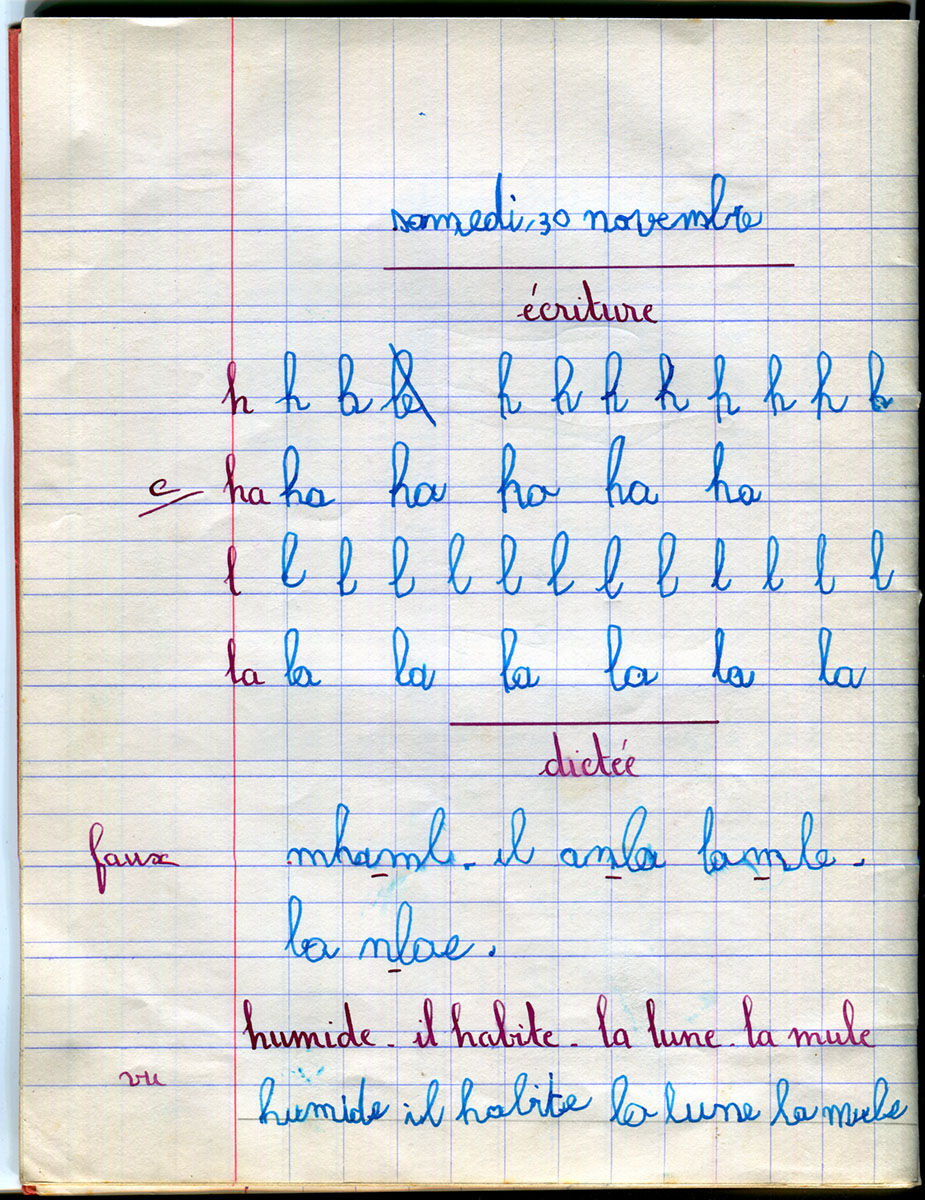 samedi, 30 novembre
écriture
h h h h h h h h h h h h
c ha ha ha ha ha ha
l l l l l l l l l l l l l
la la la la la la la
dictée
faux mhaml. il anla lamle.
la nlae.
humide. il habite. la lune. la mule
vu
humide il habite la lune la mule